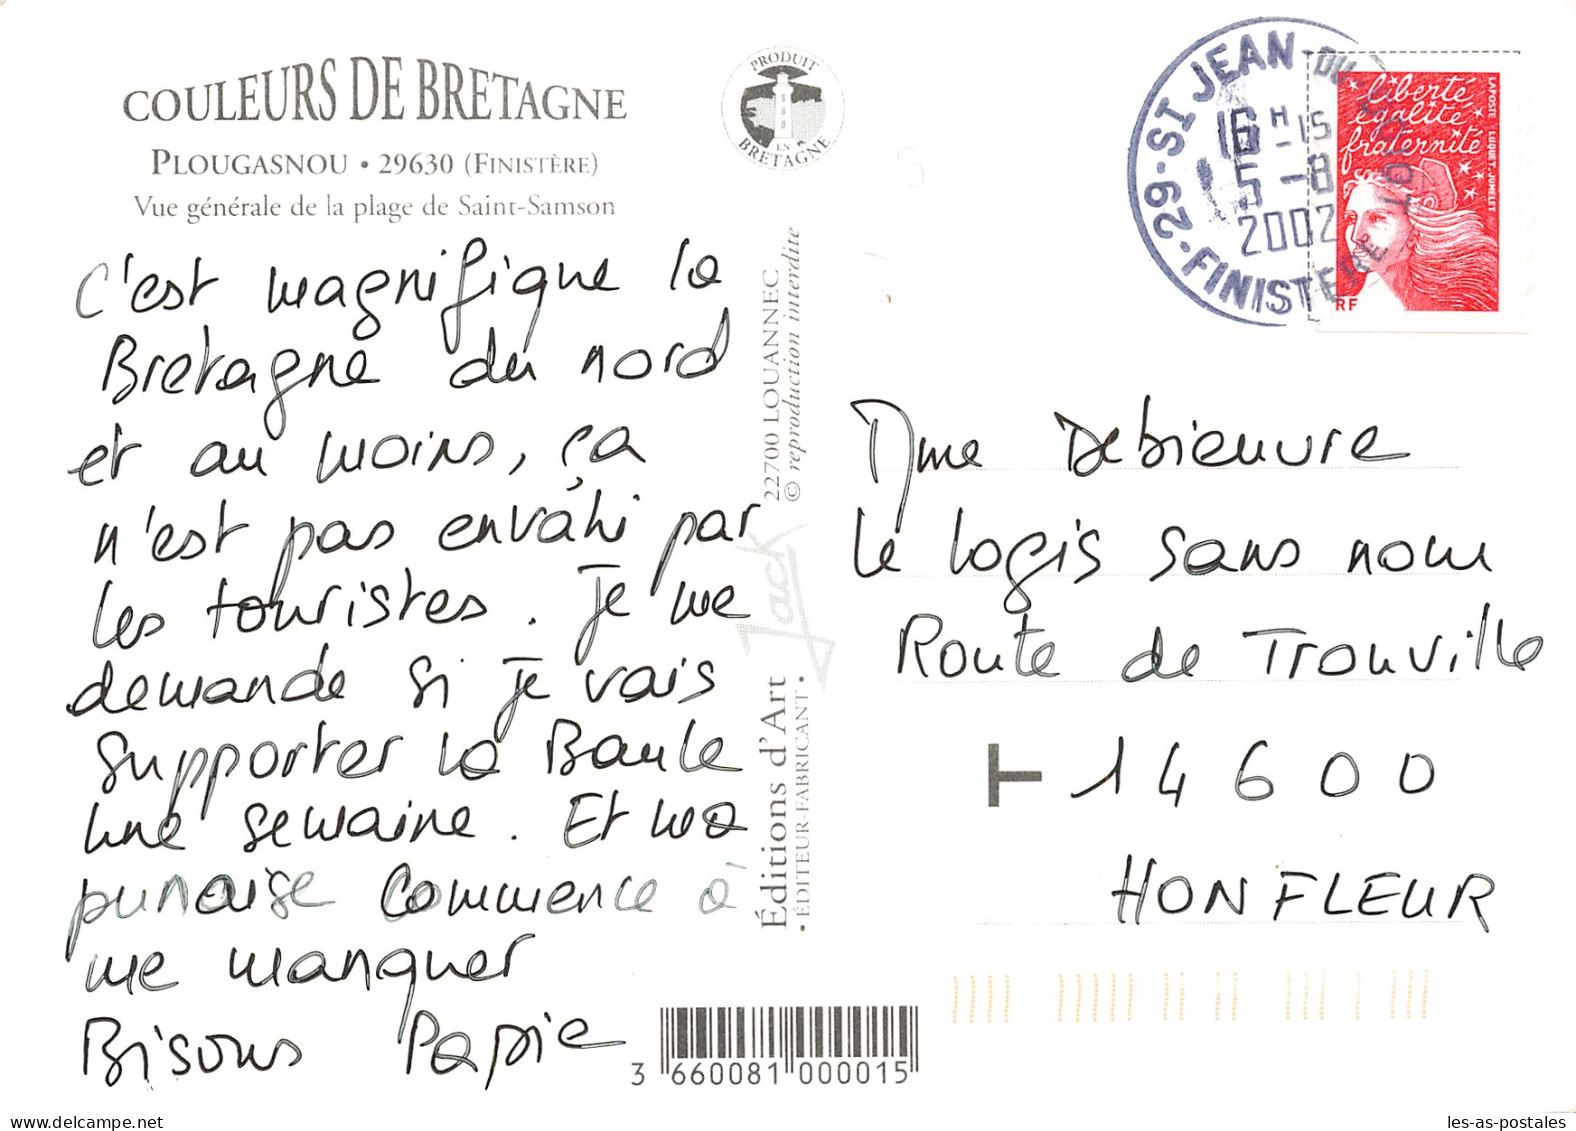 COULEURS DE BRETAGNE
PLOUGASNOU • 29630 (FINISTÈRE)
Vue générale de la plage de Saint-Samson
C'est magnifique la
Bretagne du nord
et au moins, ça
n'est pas envahi par
les touristes. Je me
demande si je vais
supporter la Baule
une semaine. Et ma
punaise commence à
me manquer
Bisous Papie
PRODUIT
EN
BRETAGNE
22700 LOUANNEC
© reproduction interdite
Jack
Éditions d'Art
• ÉDITEUR-FABRICANT •
3 660081 000015
29-ST JEAN-DU-DOIGT
16H-15
5-8
2002
FINISTERE
liberté
égalité
fraternité
LA POSTE LUQUET-JUMELET
RF
Mme Debieuvre
Le logis sans nom
Route de Trouville
14600
HONFLEUR
les-as-postales
delcampe.net